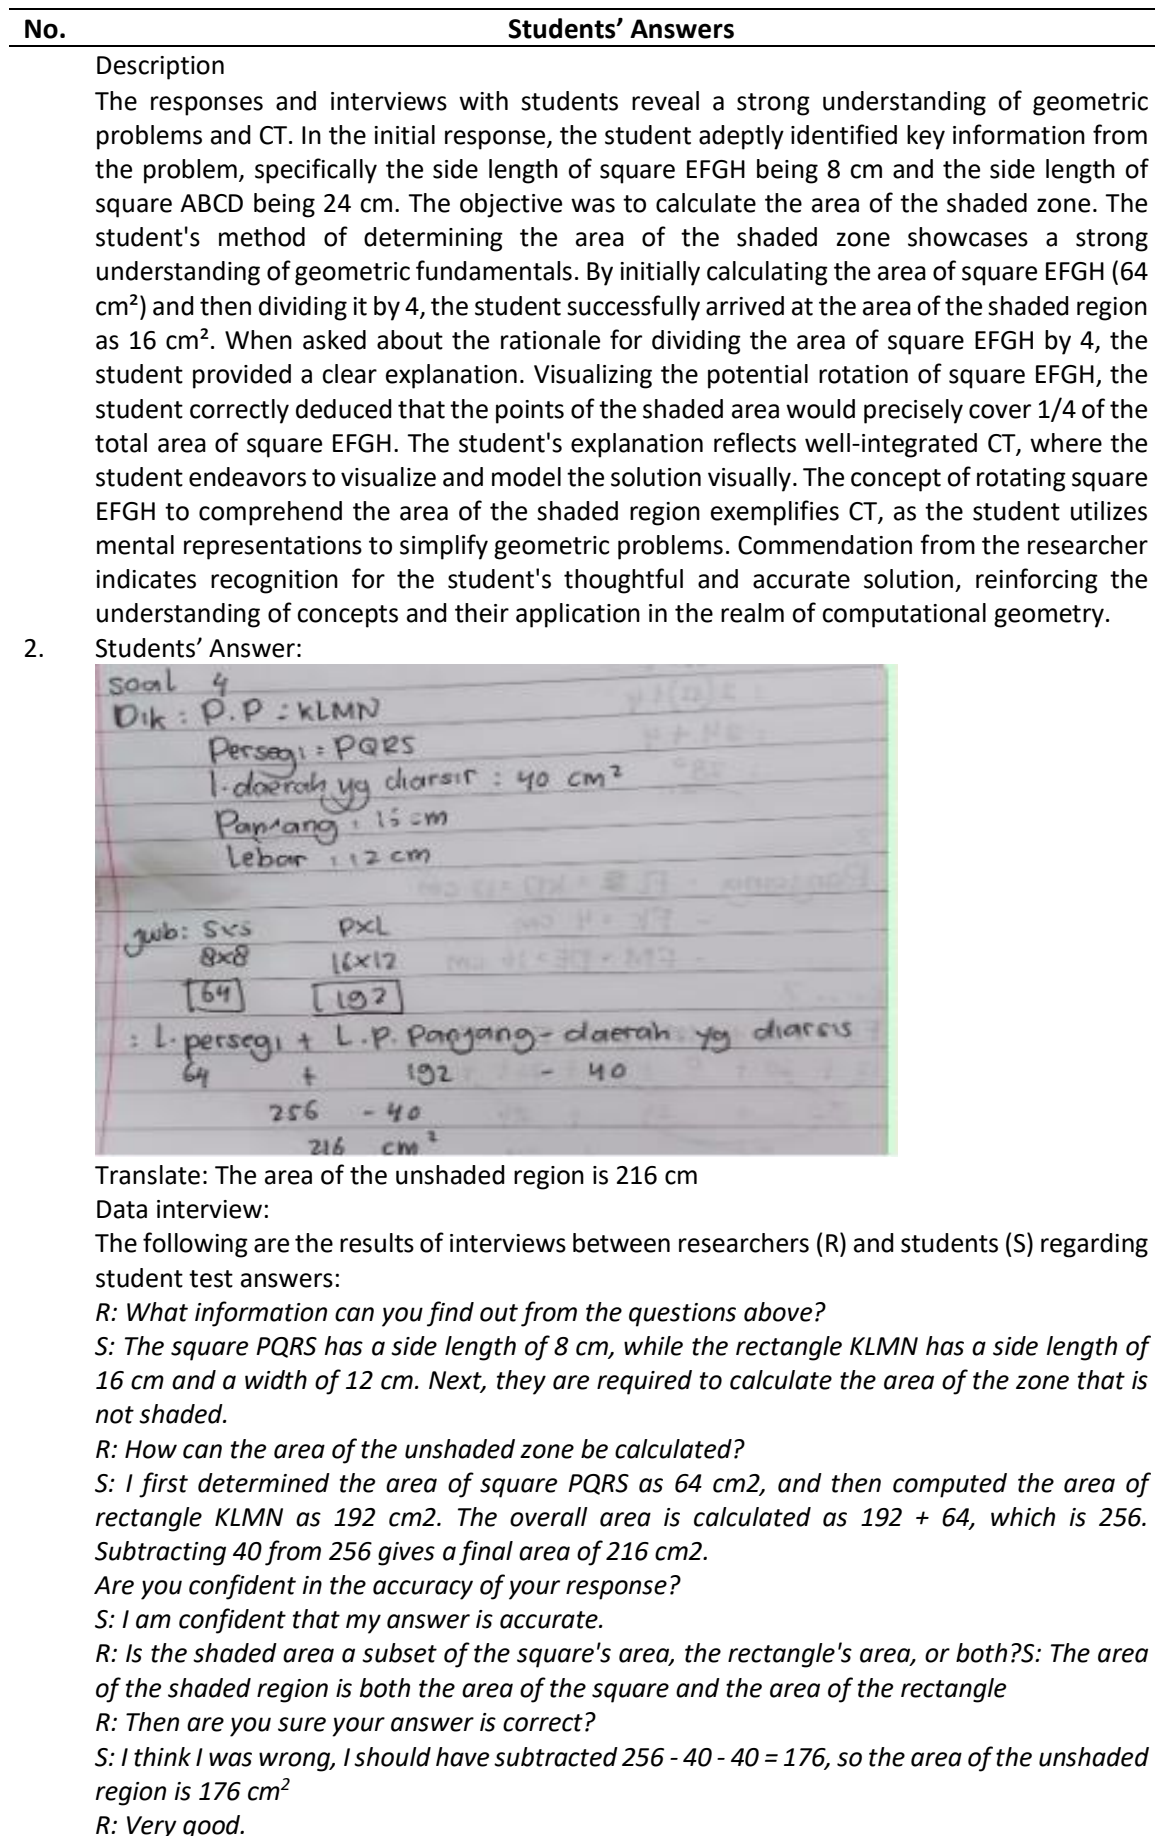 No. Students’ Answers
Description
The responses and interviews with students reveal a strong understanding of geometric
problems and CT. In the initial response, the student adeptly identified key information from
the problem, specifically the side length of square EFGH being 8 cm and the side length of
square ABCD being 24 cm. The objective was to calculate the area of the shaded zone. The
student's method of determining the area of the shaded zone showcases a strong
understanding of geometric fundamentals. By initially calculating the area of square EFGH (64
cm²) and then dividing it by 4, the student successfully arrived at the area of the shaded region
as 16 cm². When asked about the rationale for dividing the area of square EFGH by 4, the
student provided a clear explanation. Visualizing the potential rotation of square EFGH, the
student correctly deduced that the points of the shaded area would precisely cover 1/4 of the
total area of square EFGH. The student's explanation reflects well-integrated CT, where the
student endeavors to visualize and model the solution visually. The concept of rotating square
EFGH to comprehend the area of the shaded region exemplifies CT, as the student utilizes
mental representations to simplify geometric problems. Commendation from the researcher
indicates recognition for the student's thoughtful and accurate solution, reinforcing the
understanding of concepts and their application in the realm of computational geometry.
2. Students’ Answer:
soal 4
Dik : P.P : KLMN
Persegi : PQRS
l. daerah yg diarsir : 40 cm²
Panjang : cm
Lebar : 12 cm
Jwb: S×S P×L
8×8 16×12
64 192
: L. persegi + L. P. Panjang - daerah yg diarsis
64 + 192 - 40
256 - 40
216 cm²
Translate: The area of the unshaded region is 216 cm
Data interview:
The following are the results of interviews between researchers (R) and students (S) regarding
student test answers:
R: What information can you find out from the questions above?
S: The square PQRS has a side length of 8 cm, while the rectangle KLMN has a side length of
16 cm and a width of 12 cm. Next, they are required to calculate the area of the zone that is
not shaded.
R: How can the area of the unshaded zone be calculated?
S: I first determined the area of square PQRS as 64 cm2, and then computed the area of
rectangle KLMN as 192 cm2. The overall area is calculated as 192 + 64, which is 256.
Subtracting 40 from 256 gives a final area of 216 cm2.
Are you confident in the accuracy of your response?
S: I am confident that my answer is accurate.
R: Is the shaded area a subset of the square's area, the rectangle's area, or both?S: The area
of the shaded region is both the area of the square and the area of the rectangle
R: Then are you sure your answer is correct?
S: I think I was wrong, I should have subtracted 256 - 40 - 40 = 176, so the area of the unshaded
region is 176 cm²
R: Very good.